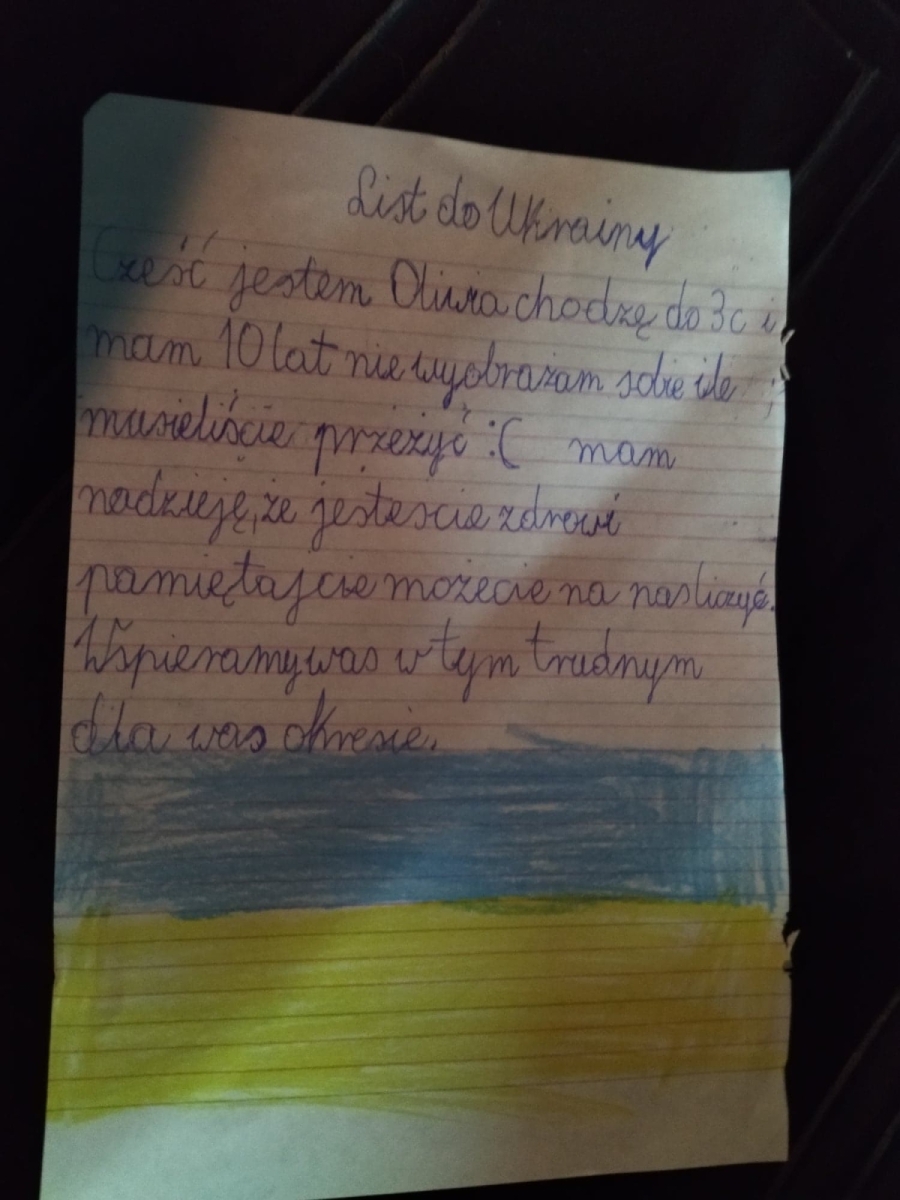 List do Ukrainy
Cześć jestem Oliwia chodzę do 3c i
mam 10 lat nie wyobrażam sobie ile
musieliście przeżyć :( mam
nadzieję, że jesteście zdrowi
pamiętajcie możecie na nas liczyć.
Wspieramy was w tym trudnym
dla was okresie.